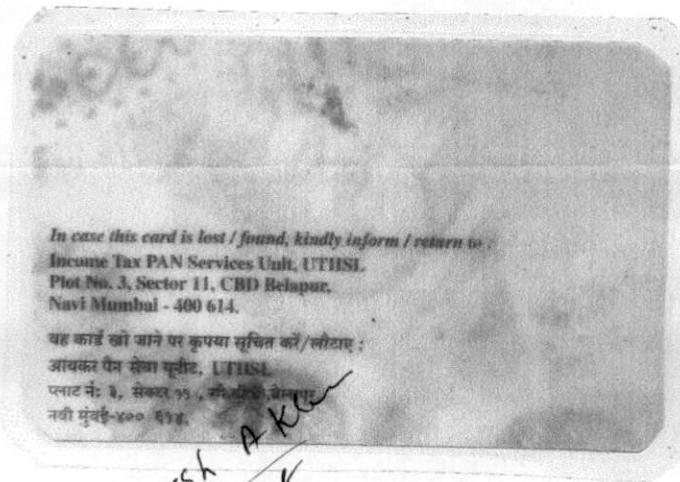 In case this card is lost / found, kindly inform / return to :
Income Tax PAN Services Unit, UTIISL
Plot No. 3, Sector 11, CBD Belapur,
Navi Mumbai - 400 614.
यह कार्ड खो जाने पर कृपया सूचित करें/लौटाए :
आयकर पैन सेवा यूनीट, UTIISL
प्लाट नं: ३, सेक्टर ११ , सी.बी.डी.बेलापूर,
नवी मुंबई-४०० ६१४.